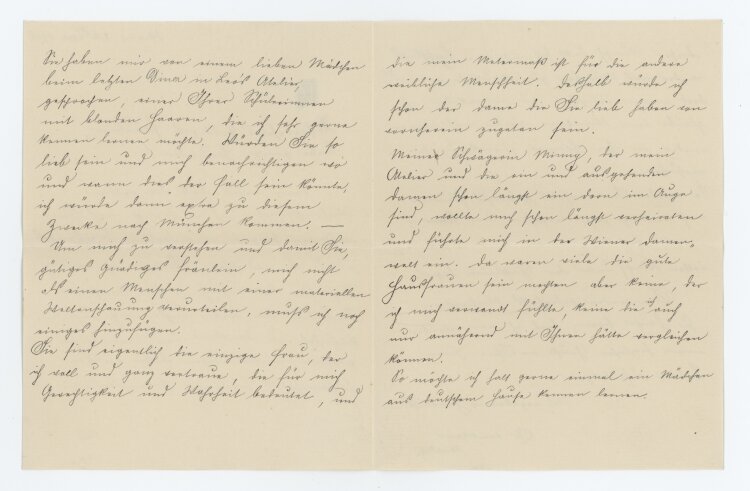 Sie haben mir von einem lieben Mädchen
beim letzten Diner in Leos Atelier,
gesprochen, einer Ihrer Schülerinnen
mit blonden Haaren, die ich sehr gerne
kennen lernen möchte. Würden Sie so
lieb sein und mich benachrichtigen wo
und wann dies der Fall sein könnte,
ich würde dann extra zu diesem
Zwecke nach München kommen. —
Um mich zu verstehen und damit Sie,
gütiges gnädiges Fräulein, mich nicht
als einen Menschen mit einer materiellen
Weltanschauung verurteilen, muss ich noch
einiges hinzufügen.
Sie sind eigentlich die einzige Frau, der
ich voll und ganz vertraue, die für mich
Gerechtigkeit und Wahrheit bedeutet, und
die mein Metermaß ist für die andere
weibliche Menschheit. Deshalb würde ich
schon der Dame die Sie lieb haben von
vornherein zugetan sein.
Meine Schwägerin Minny, der mein
Atelier und die ein und ausgehenden
Damen schon längst ein Dorn im Auge
sind, wollte mich schon längst verheiraten
und führte mich in der Wiener Damen-
welt ein. Da waren viele die gute
Hausfrauen sein mochten aber keine, der
ich mich verwandt fühlte, keine die ich auch
nur annährend mit Ihnen hätte vergleichen
können.
So möchte ich halt gerne einmal ein Mädchen
aus deutschem Hause kennen lernen.